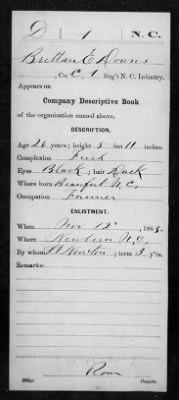 D 1 N.C.
Brittan E Downs
, Co. C, 1 Reg't N. C. Infantry.
Appears on
Company Descriptive Book
of the organization named above.
DESCRIPTION.
Age 26 years; height 5 feet 11 inches.
Complexion
Eyes Black; hair Dark
Where born Beaufort N.C.
Occupation Farmer
ENLISTMENT.
When Nov 12, 1863.
Where Newbern N.C.
By whom Lt Newton; term 3 y'rs.
Remarks:
Copyist.